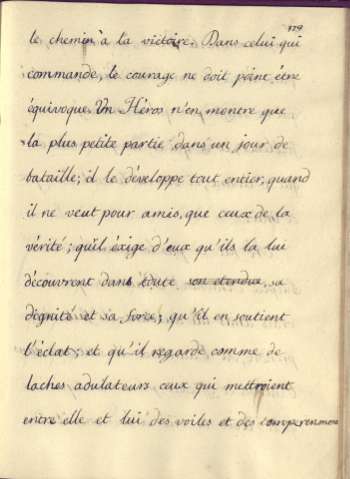 179
le chemin à la victoire. Dans celui qui
commande, le courage ne doit point être
équivoque. Un Héros n'en montre que
la plus petite partie dans un jour de
bataille; il le développe tout entier, quand
il ne veut pour amis, que ceux de la
vérité; qu'il éxige d'eux qu'ils la lui
découvrent dans toute son etendue, sa
dignité et sa force; qu'il en soutient
l'éclat; et qu'il regarde comme de
laches adulateurs ceux qui mettroient
entre elle et lui des voiles et des